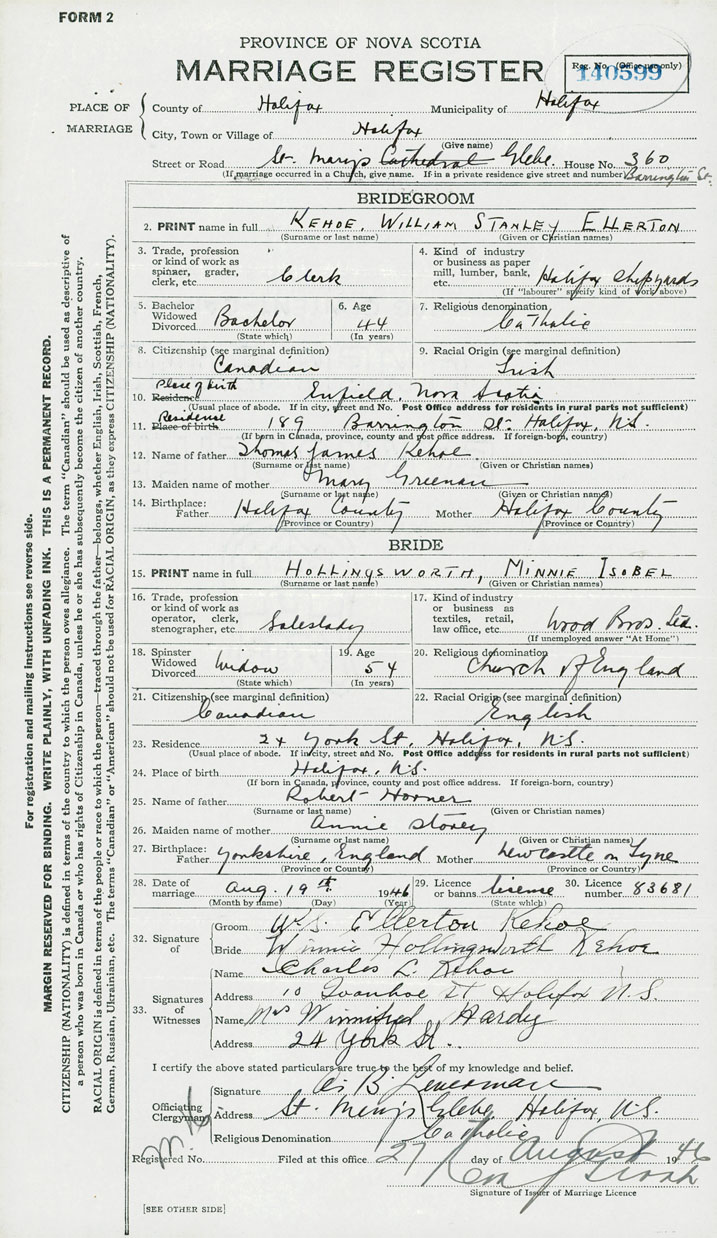 FORM 2
PROVINCE OF NOVA SCOTIA
MARRIAGE REGISTER
Reg. No. (Office use only)
140599
PLACE OF MARRIAGE
County of Halifax Municipality of Halifax
City, Town or Village of Halifax
(Give name)
Street or Road St. Mary's Cathedral Glebe House No. 360
(If marriage occurred in a Church, give name. If in a private residence give street and number) Barrington St.
BRIDEGROOM
2. PRINT name in full KEHOE, WILLIAM STANLEY ELLERTON
(Surname or last name) (Given or Christian names)
3. Trade, profession or kind of work as spinner, grader, clerk, etc. Clerk
4. Kind of industry or business as paper mill, lumber, bank, etc. Halifax Shipyards
(If "labourer" specify kind of work above)
5. Bachelor Widowed Divorced Bachelor
(State which)
6. Age 44
(In years)
7. Religious denomination Catholic
8. Citizenship (see marginal definition) Canadian
9. Racial Origin (see marginal definition) Irish
Place of birth
10. Residence Enfield, Nova Scotia
(Usual place of abode. If in city, street and No. Post Office address for residents in rural parts not sufficient)
Residence
11. Place of birth 189 Barrington St. Halifax, N.S.
(If born in Canada, province, county and post office address. If foreign-born, country)
12. Name of father Thomas James Kehoe
(Surname or last name) (Given or Christian names)
13. Maiden name of mother Mary Greenan
(Surname or last name) (Given or Christian names)
14. Birthplace: Father Halifax County Mother Halifax County
(Province or Country) (Province or Country)
BRIDE
15. PRINT name in full HOLLINGSWORTH, MINNIE ISOBEL
(Surname or last name) (Given or Christian names)
16. Trade, profession or kind of work as operator, clerk, stenographer, etc. Saleslady
17. Kind of industry or business as textiles, retail, law office, etc. Wood Bros. Ltd.
(If unemployed answer "At Home")
18. Spinster Widowed Divorced Widow
(State which)
19. Age 54
(In years)
20. Religious denomination Church of England
21. Citizenship (see marginal definition) Canadian
22. Racial Origin (see marginal definition) English
23. Residence 24 York St., Halifax, N.S.
(Usual place of abode. If in city, street and No. Post Office address for residents in rural parts not sufficient)
24. Place of birth Halifax, N.S.
(If born in Canada, province, county and post office address. If foreign-born, country)
25. Name of father Robert Horner
(Surname or last name) (Given or Christian names)
26. Maiden name of mother Annie Storey
(Surname or last name) (Given or Christian names)
27. Birthplace: Father Yorkshire, England Mother Newcastle on Tyne
(Province or Country) (Province or Country)
28. Date of marriage Aug. 19th 1946
(Month by name) (Day) (Year)
29. Licence or banns license
(State which)
30. Licence number 83681
32. Signature of
Groom Wm S. Ellerton Kehoe
Bride Minnie Hollingsworth Kehoe
33. Signatures of Witnesses
Name Charles L. Kehoe
Address 10 Ivanhoe St Halifax N.S.
Name Mrs Winnifred Hardy
Address 24 York St.
I certify the above stated particulars are true to the best of my knowledge and belief.
Officiating Clergyman
Signature
Address St. Mary's Glebe, Halifax, N.S.
Religious Denomination Catholic
Registered No. Filed at this office 27 day of August 1946
Signature of Issuer of Marriage Licence
[SEE OTHER SIDE]
For registration and mailing instructions see reverse side.
MARGIN RESERVED FOR BINDING. WRITE PLAINLY, WITH UNFADING INK. THIS IS A PERMANENT RECORD.
CITIZENSHIP (NATIONALITY) is defined in terms of the country to which the person owes allegiance. The term "Canadian" should be used as descriptive of
a person who was born in Canada or who has rights of Citizenship in Canada, unless he or she has subsequently become the citizen of another country.
RACIAL ORIGIN is defined in terms of the people or race to which the person—traced through the father—belongs, whether English, Irish, Scottish, French,
German, Russian, Ukrainian, etc. The terms "Canadian" or "American" should not be used for RACIAL ORIGIN, as they express CITIZENSHIP (NATIONALITY).